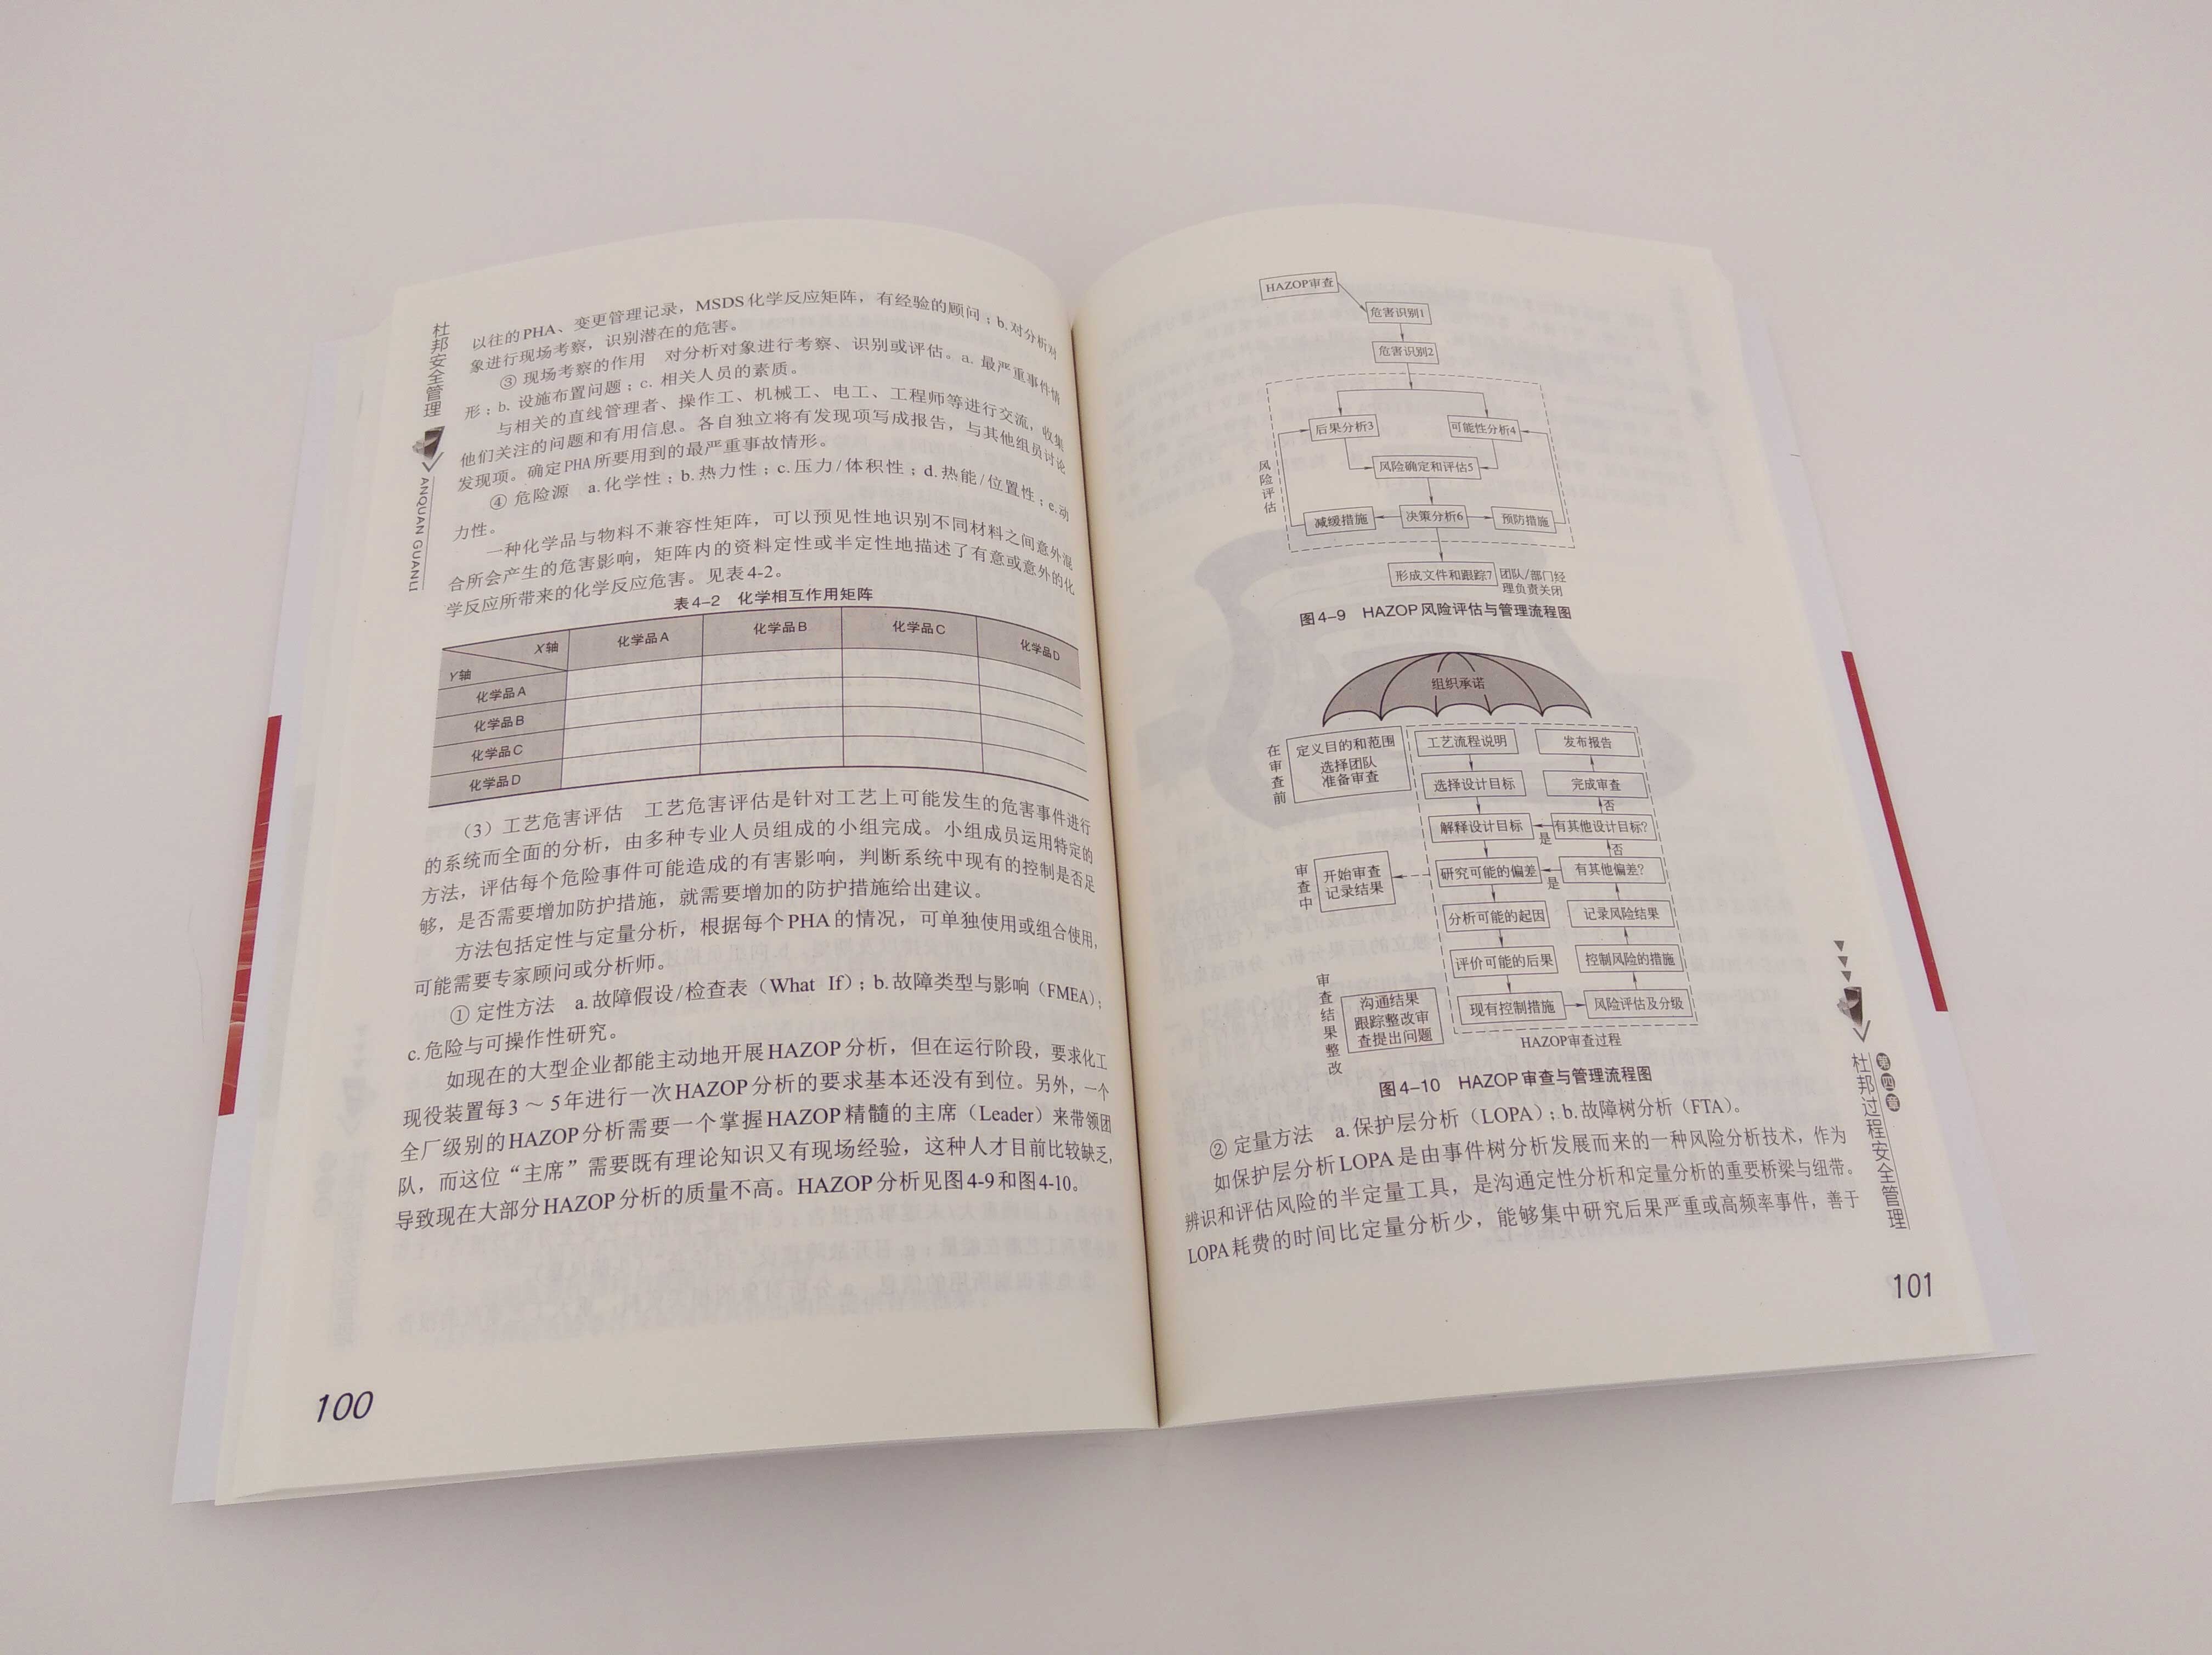 杜邦安全管理
ANQUAN GUANLI
以往的PHA、变更管理记录，MSDS化学反应矩阵，有经验的顾问；b.对分析对
象进行现场考察，识别潜在的危害。
③ 现场考察的作用 对分析对象进行考察、识别或评估。a. 最严重事件情
形；b. 设施布置问题；c. 相关人员的素质。
与相关的直线管理者、操作工、机械工、电工、工程师等进行交流，收集
他们关注的问题和有用信息。各自独立将有发现项写成报告，与其他组员讨论
发现项。确定PHA所要用到的最严重事故情形。
④ 危险源 a.化学性；b.热力性；c.压力/体积性；d.热能/位置性；e.动
力性。
一种化学品与物料不兼容性矩阵，可以预见性地识别不同材料之间意外混
合所会产生的危害影响，矩阵内的资料定性或半定性地描述了有意或意外的化
学反应所带来的化学反应危害。见表4-2。
表4-2 化学相互作用矩阵
X轴 化学品A 化学品B 化学品C 化学品D
Y轴
化学品A
化学品B
化学品C
化学品D
（3）工艺危害评估 工艺危害评估是针对工艺上可能发生的危害事件进行
的系统而全面的分析，由多种专业人员组成的小组完成。小组成员运用特定的
方法，评估每个危险事件可能造成的有害影响，判断系统中现有的控制是否足
够，是否需要增加防护措施，就需要增加的防护措施给出建议。
方法包括定性与定量分析，根据每个PHA的情况，可单独使用或组合使用，
可能需要专家顾问或分析师。
① 定性方法 a.故障假设/检查表（What If）；b.故障类型与影响（FMEA）；
c.危险与可操作性研究。
如现在的大型企业都能主动地开展HAZOP分析，但在运行阶段，要求化工
现役装置每3～5年进行一次HAZOP分析的要求基本还没有到位。另外，一个
全厂级别的HAZOP分析需要一个掌握HAZOP精髓的主席（Leader）来带领团
队，而这位“主席”需要既有理论知识又有现场经验，这种人才目前比较缺乏，
导致现在大部分HAZOP分析的质量不高。HAZOP分析见图4-9和图4-10。
100
HAZOP审查
危害识别1
危害识别2
后果分析3
可能性分析4
风险确定和评估5
风险评估
减缓措施
决策分析6
预防措施
形成文件和跟踪7
团队/部门经
理负责关闭
图4-9 HAZOP风险评估与管理流程图
组织承诺
在审查前
定义目的和范围
选择团队
准备审查
工艺流程说明
发布报告
选择设计目标
完成审查
否
解释设计目标
是
有其他设计目标？
否
审查中
开始审查
记录结果
研究可能的偏差
是
有其他偏差？
分析可能的起因
记录风险结果
评价可能的后果
控制风险的措施
审查结果整改
沟通结果
跟踪整改审
查提出问题
现有控制措施
风险评估及分级
HAZOP审查过程
图4-10 HAZOP审查与管理流程图
② 定量方法 a.保护层分析（LOPA）；b.故障树分析（FTA）。
如保护层分析LOPA是由事件树分析发展而来的一种风险分析技术，作为
辨识和评估风险的半定量工具，是沟通定性分析和定量分析的重要桥梁与纽带。
LOPA耗费的时间比定量分析少，能够集中研究后果严重或高频率事件，善于
第四章
杜邦过程安全管理
101